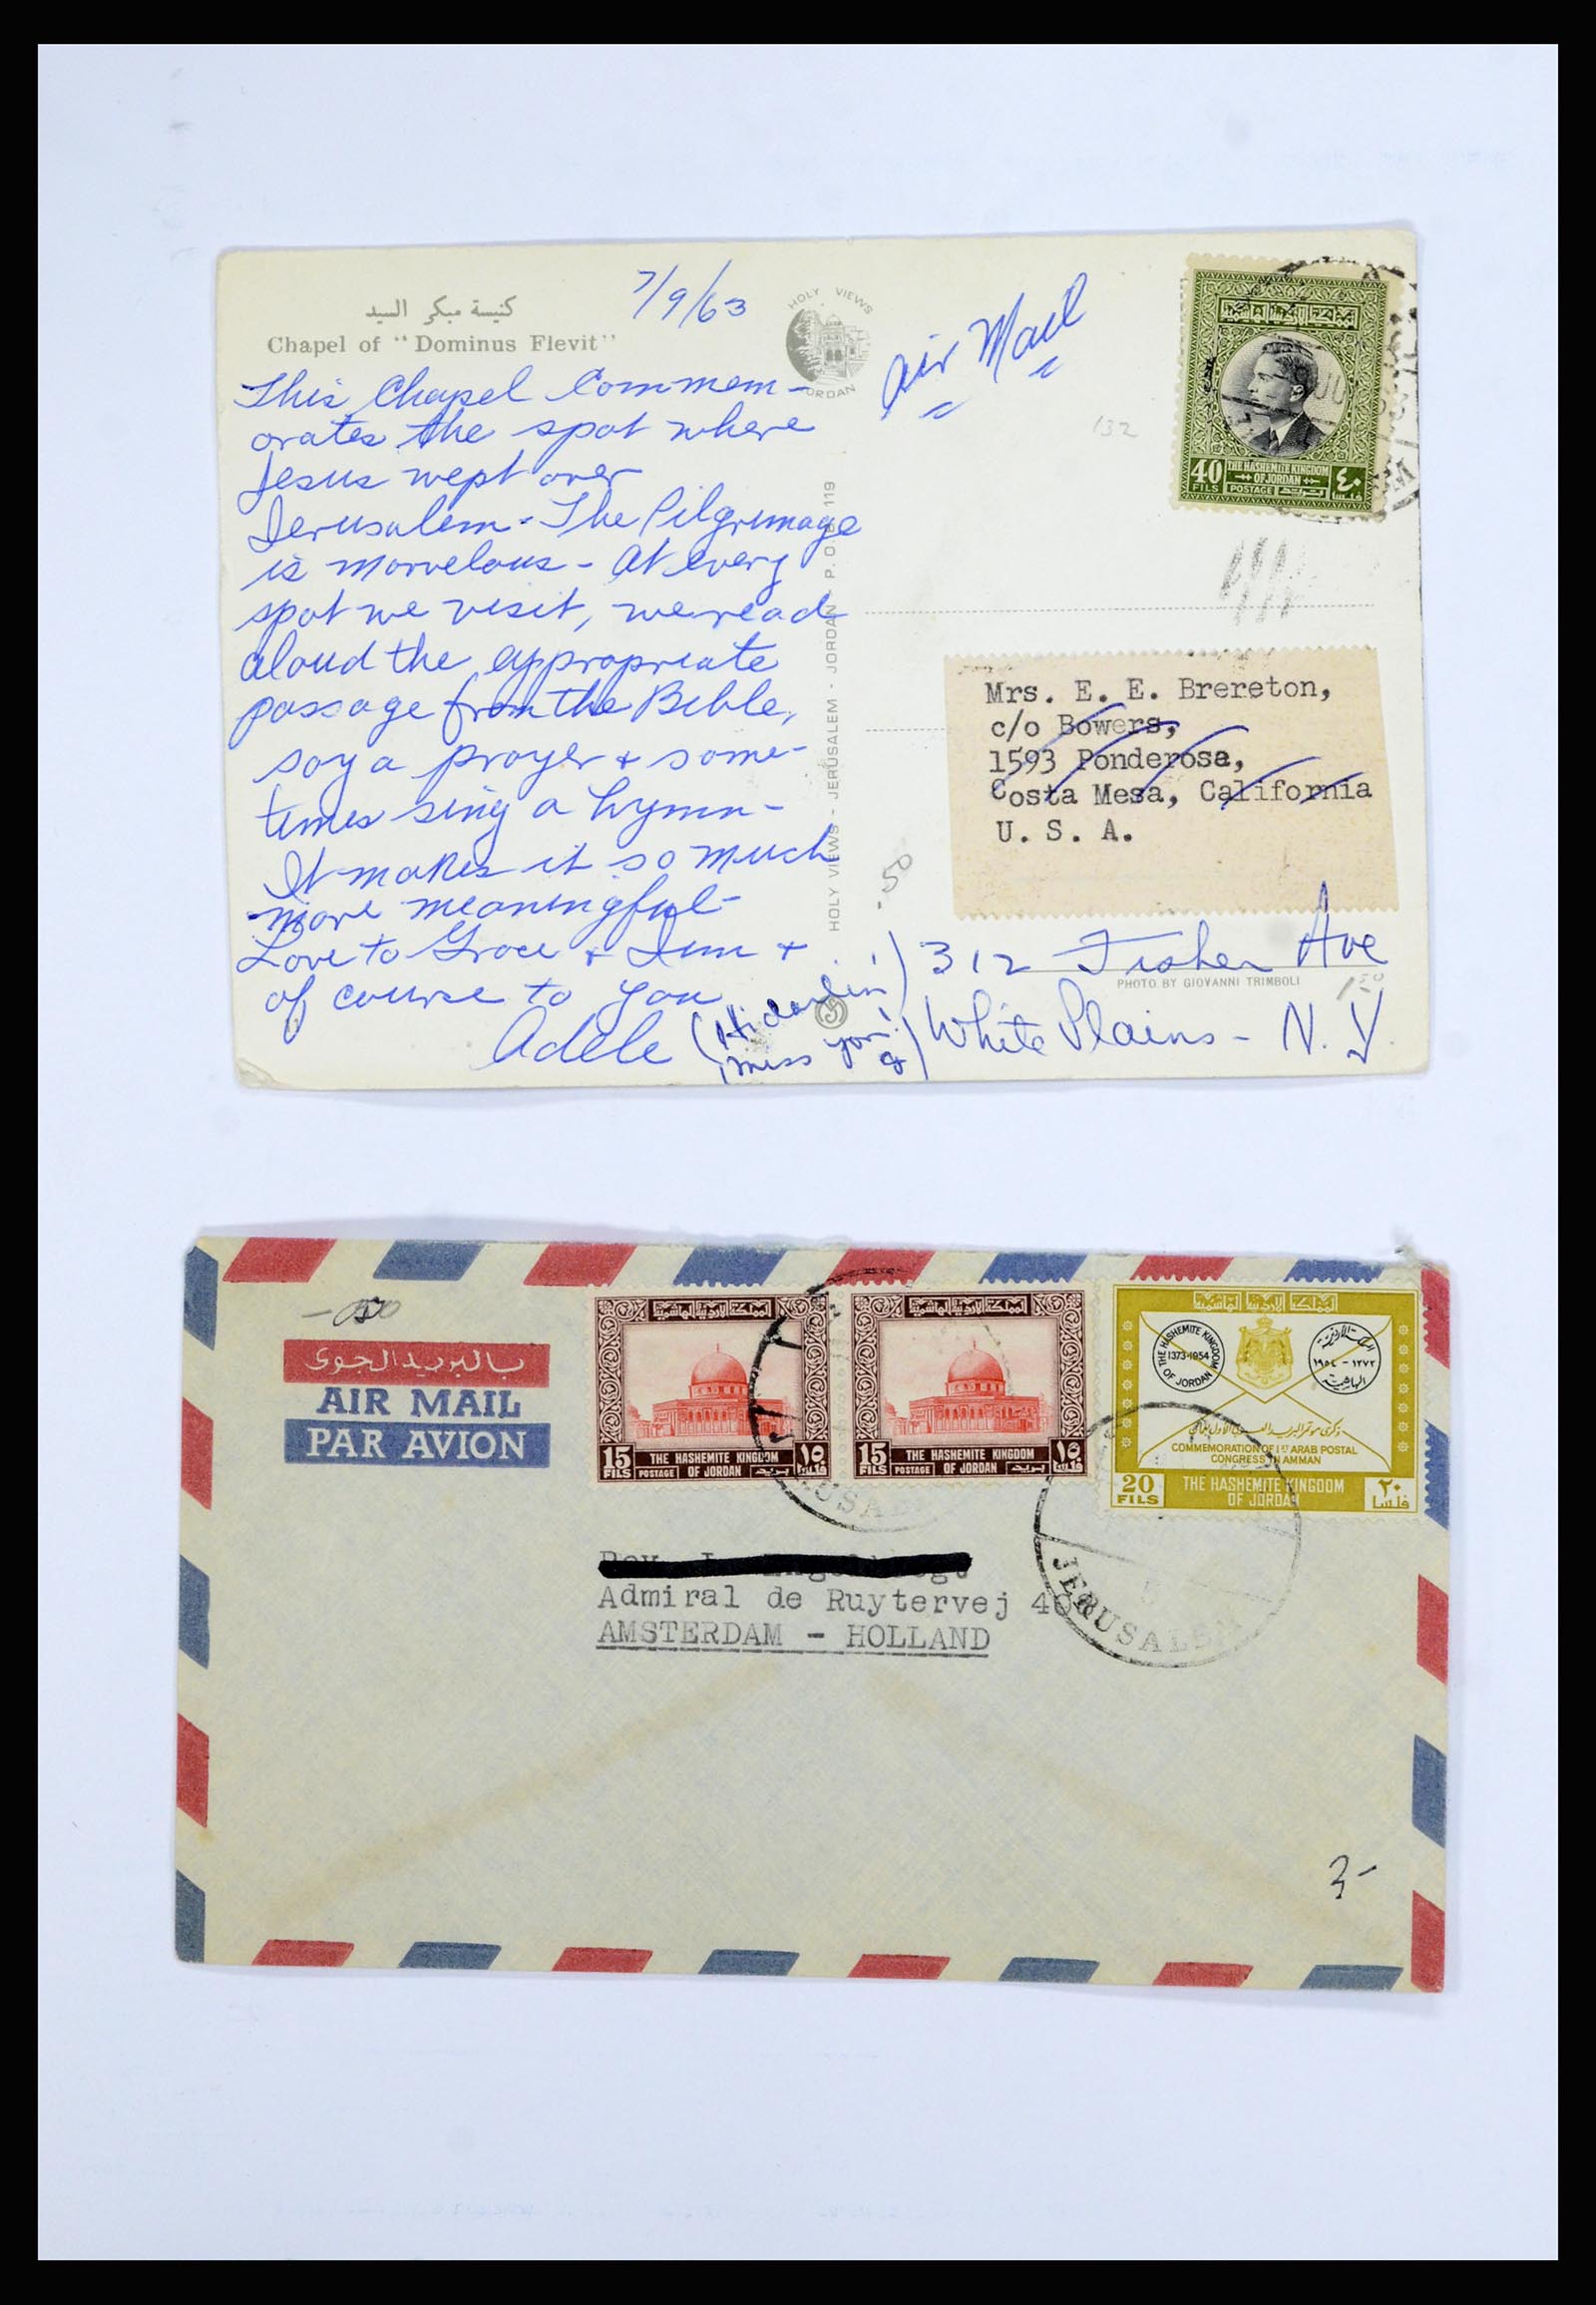 كنيسة مبكى السيد
Chapel of "Dominus Flevit"
7/9/63
HOLY VIEWS
JORDAN
Air Mail
132
This Chapel Commem-
orates the spot where
Jesus wept over
Jerusalem - The Pilgrimage
is marvelous - At every
spot we visit, we read
aloud the appropriate
passage from the Bible,
say a prayer & some-
times sing a hymn -
It makes it so much
more meaningful -
Love to Grace & &
of course to you
Adele
(Hi darlin'!)
miss you!
HOLY VIEWS - JERUSALEM - JORDAN - P. O. B. 119
المملكة الأردنية الهاشمية
40 FILS
THE HASHEMITE KINGDOM
OF JORDAN
POSTAGE بريد
٤٠ فلسا
Mrs. E. E. Brereton,
c/o Bowers,
1593 Ponderosa,
Costa Mesa, California
U. S. A.
.50
312 Fisher Ave
PHOTO BY GIOVANNI TRIMBOLI
150
White Plains - N. Y.
بالبريد الجوى
AIR MAIL
PAR AVION
المملكة الأردنية الهاشمية
15 FILS
THE HASHEMITE KINGDOM
POSTAGE OF JORDAN بريد
١٥ فلسا
المملكة الأردنية الهاشمية
15 FILS
THE HASHEMITE KINGDOM
POSTAGE OF JORDAN بريد
١٥ فلسا
المملكة الأردنية الهاشمية
THE HASHEMITE KINGDOM
1373-1954
OF JORDAN
المملكة الأردنية
١٩٥٤ - ١٣٧٣
الهاشمية
ذكرى مؤتمر البريد العربي الأول بعمان
COMMEMORATION OF 1ST ARAB POSTAL
CONGRESS IN AMMAN
20 FILS
THE HASHEMITE KINGDOM
OF JORDAN
٢٠ فلسا
JERUSALEM
Admiral de Ruytervej
AMSTERDAM - HOLLAND
3-